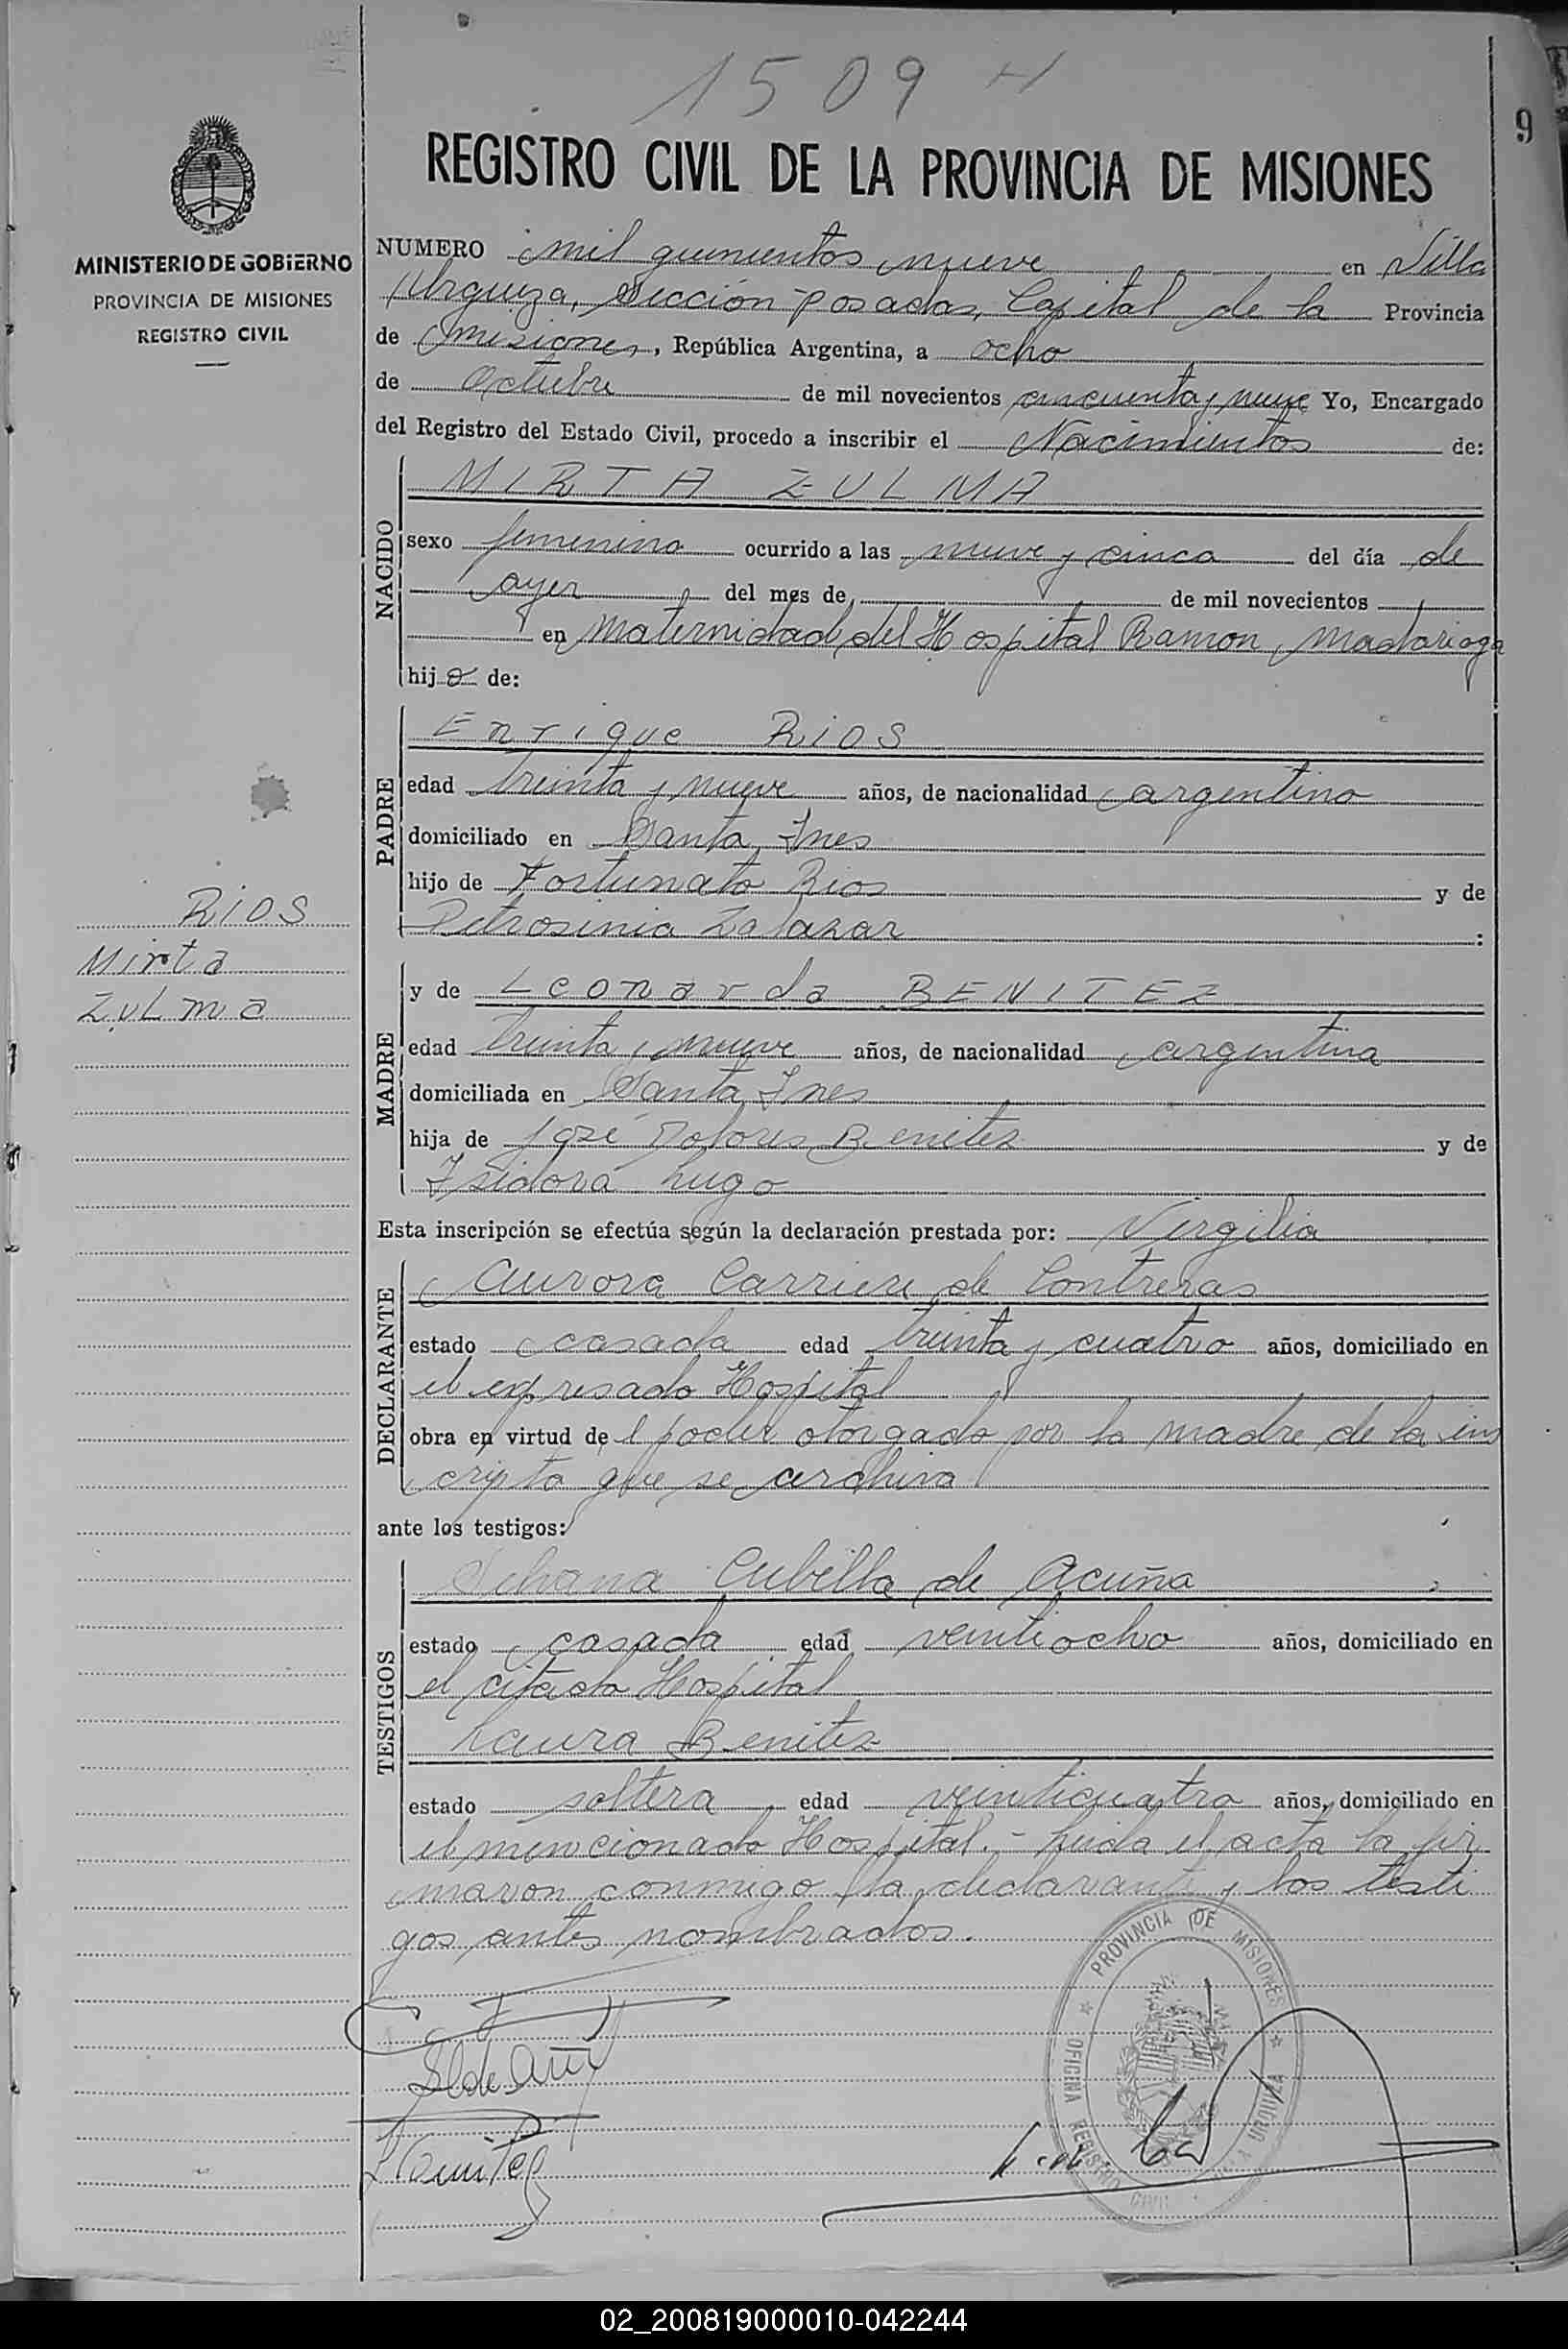 1509
9
REGISTRO CIVIL DE LA PROVINCIA DE MISIONES
MINISTERIO DE GOBIERNO
PROVINCIA DE MISIONES
REGISTRO CIVIL
NUMERO mil quinientos nueve en Villa
Urquiza, Sección Posadas, Capital de la Provincia
de Misiones, República Argentina, a ocho
de Octubre de mil novecientos cincuenta y nueve Yo, Encargado
del Registro del Estado Civil, procedo a inscribir el Nacimientos de:
NACIDO
MIRTA ZULMA
sexo femenino ocurrido a las nueve y cinco del día de
ayer del mes de de mil novecientos
en Maternidad del Hospital Ramon Madariaga
hija de:
PADRE
Enrique RIOS
edad treinta y nueve años, de nacionalidad argentino
domiciliado en Santa Ines
hijo de Fortunato Rios y de
Petrosinia Zalazar :
RIOS
Mirta
Zulma
MADRE
y de Leonarda BENITEZ
edad treinta y nueve años, de nacionalidad argentina
domiciliada en Santa Ines
hija de José Dolores Benitez y de
Isidora Lugo
Esta inscripción se efectúa según la declaración prestada por: Virgilia
DECLARANTE
Aurora Carriere de Contreras
estado casada edad treinta y cuatro años, domiciliado en
el expresado Hospital
obra en virtud del poder otorgado por la madre de la ins
cripta que se archiva
ante los testigos:
TESTIGOS
Cubilla de Acuña
estado casada edad veintiocho años, domiciliado en
el citado Hospital
Laura Benitez
estado soltera edad veinticuatro años, domiciliado en
el mencionado Hospital.- Leida el acta la fir
maron conmigo la declarante y los testi
gos antes nombrados.
PROVINCIA DE MISIONES
OFICINA REGISTRO CIVIL
VILLA URQUIZA
02_200819000010-042244